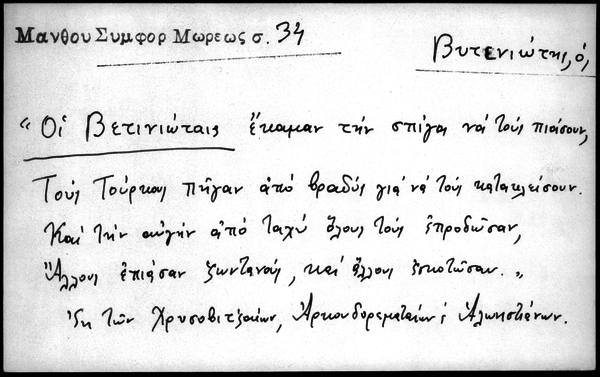 Μανθου Συμφορ Μωρεως σ. 34
Βυτενιώτης, ὁ,
"Οἱ Βετινιώταις ἔκαμαν τὴν σπίγα νὰ τοὺς πιάσουν,
Τοὺς Τούρκους πῆγαν ἀπὸ βραδὺς γιὰ νὰ τοὺς κατακλείσουν.
Καὶ τὴν αὐγὴν ἀπὸ ταχὺ ὅλους τοὺς ἐπροδῶσαν,
Ἄλλους ἐπιάσαν ζωντανούς, καὶ ἄλλους ἐσκοτῶσαν. "
Ἐκ τῶν Χρυσοβιτζοίων, Ἀρκουδορεματαίων ἑ Ἀλωνιστιάνων.